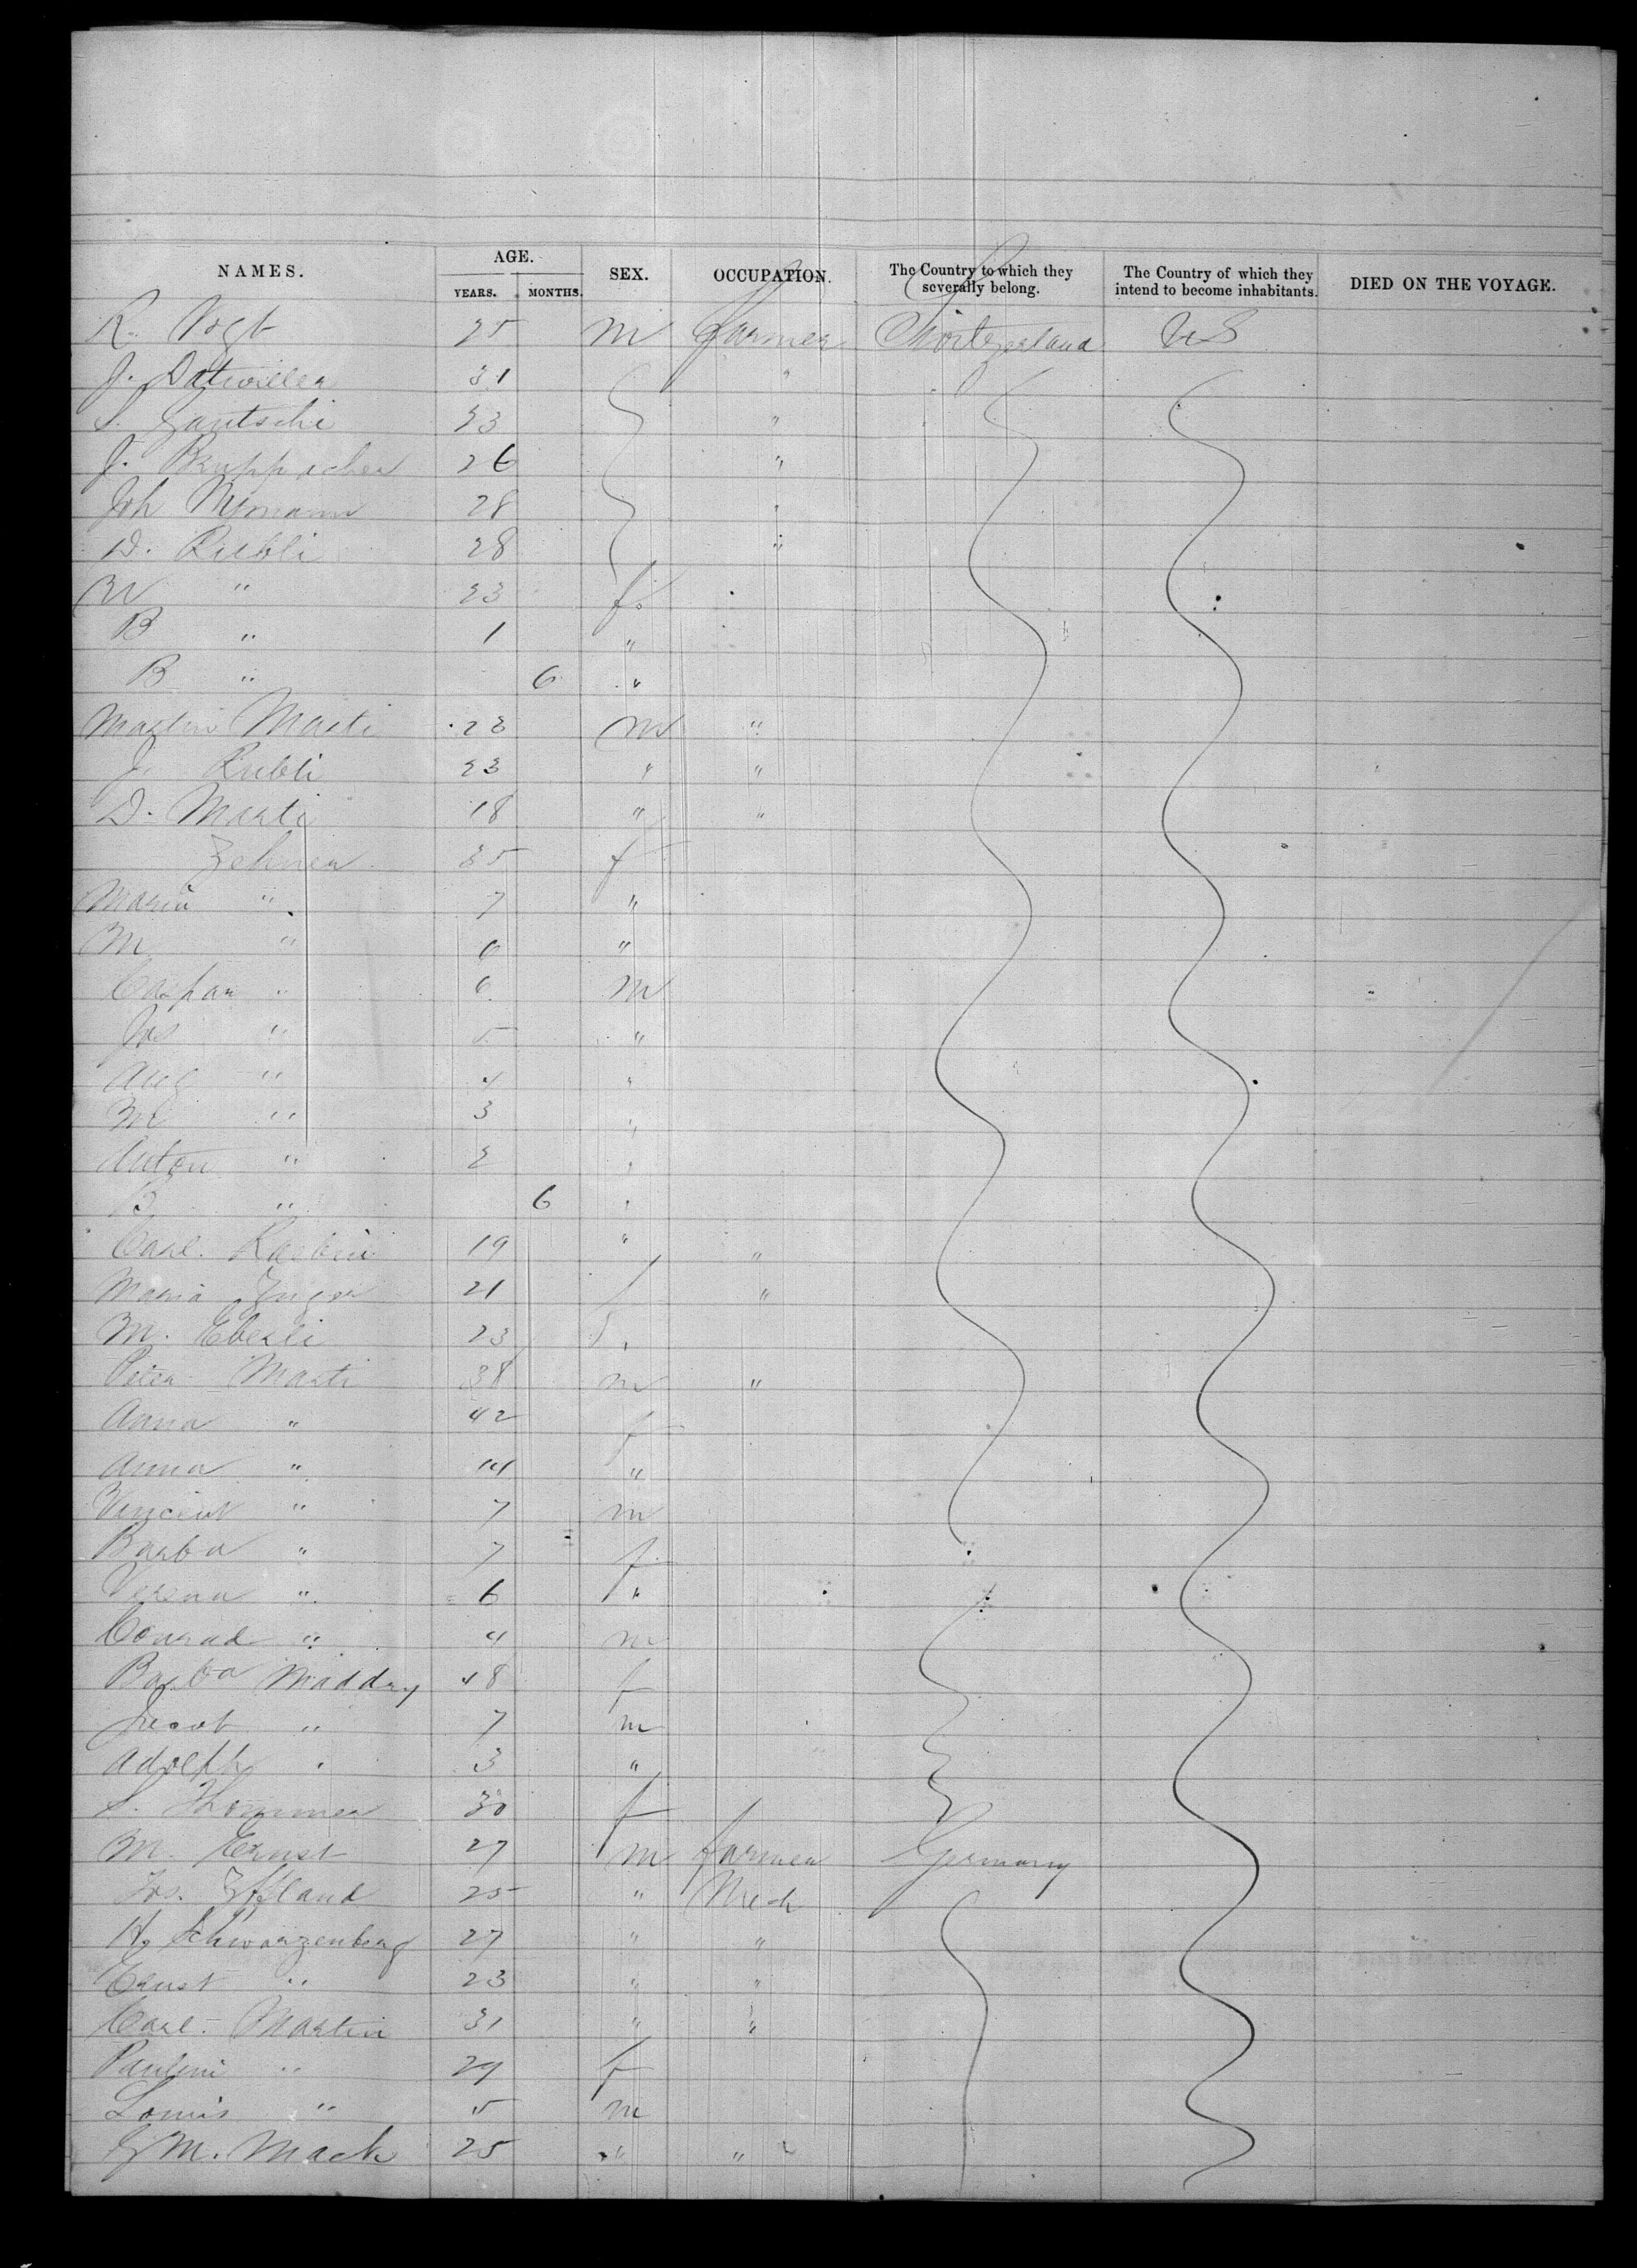 NAMES. AGE. YEARS. MONTHS. SEX. OCCUPATION. The Country to which they severally belong. The Country of which they intend to become inhabitants. DIED ON THE VOYAGE.
R. Vogt 25 m farmer Switzerland U S
J. Datwiller 31 "
S. Gautschi 23 "
J. Bruppacher 26 "
Joh 28 "
D. Rubli 28 "
W " 23 f.
B " 1 "
B " 6 "
Martin Marti 23 m "
J. Rubli 23 " "
D. Marti 18 " "
Zehner 35 f
Maria " 7 "
M " 6 "
Caspar " 6 m
Jos " 5 "
Aug " 4 "
M " 3 "
Anton " 2 "
B " 6 "
Carl. 19 " "
Maria 21 f "
M. Eberli 23 "
Peter Marti 38 m "
Anna " 42 f
Anna " 14 "
Vincent " 7 m
Barba " 7 f
Verena " 6 "
Conrad " 4 m
Barba Madday 48 f
Jacob " 7 m
Adolph " 3 "
S. Thommen 30 f
M. Ernst 27 m farmer Germany
Jos. Iffland 25 " Mech
Hy Schwarzenberg 27 " "
Ernst " 23 " "
Carl. Martin 31 " "
Paulini " 29 f
Louis " 5 m
G M. Mack 25 " "